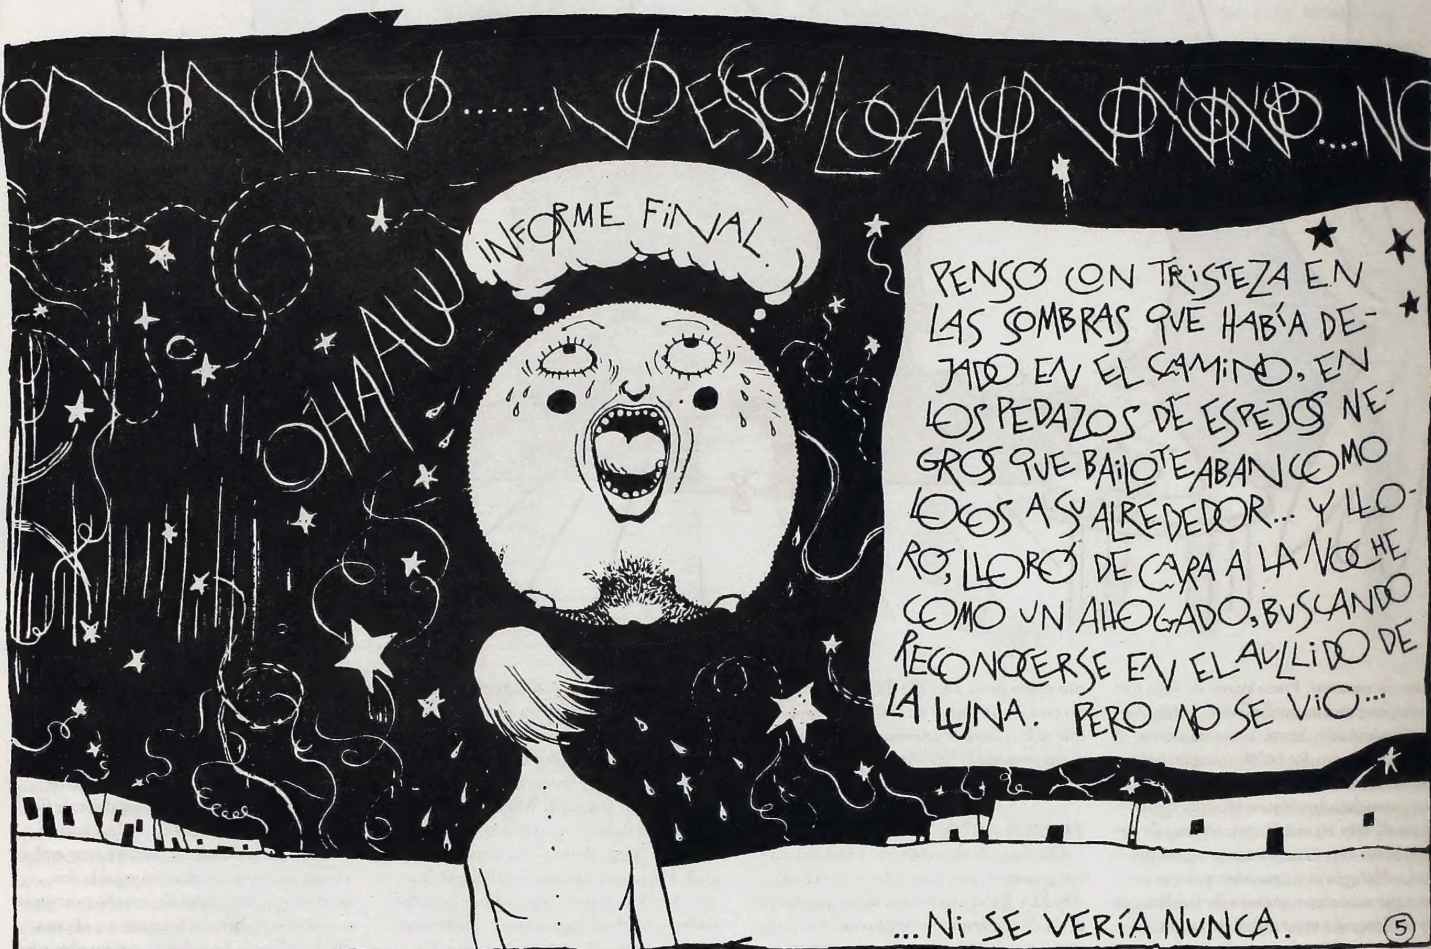 NO NO NO NO...... NO ESTOI LOCA NO NO NO NO NO NO.... NO
INFORME FINAL.
OHAUU
PENSÓ CON TRISTEZA EN
LAS SOMBRAS QUE HABÍA DE-
JADO EN EL CAMINO, EN
LOS PEDAZOS DE ESPEJOS NE-
GROS QUE BAILOTEABAN COMO
LOCOS A SU ALREDEDOR... Y LLO-
RÓ, LLORÓ DE CARA A LA NOCHE
COMO UN AHOGADO, BUSCANDO
RECONOCERSE EN EL AULLIDO DE
LA LUNA. PERO NO SE VIO...
...NI SE VERÍA NUNCA.
5